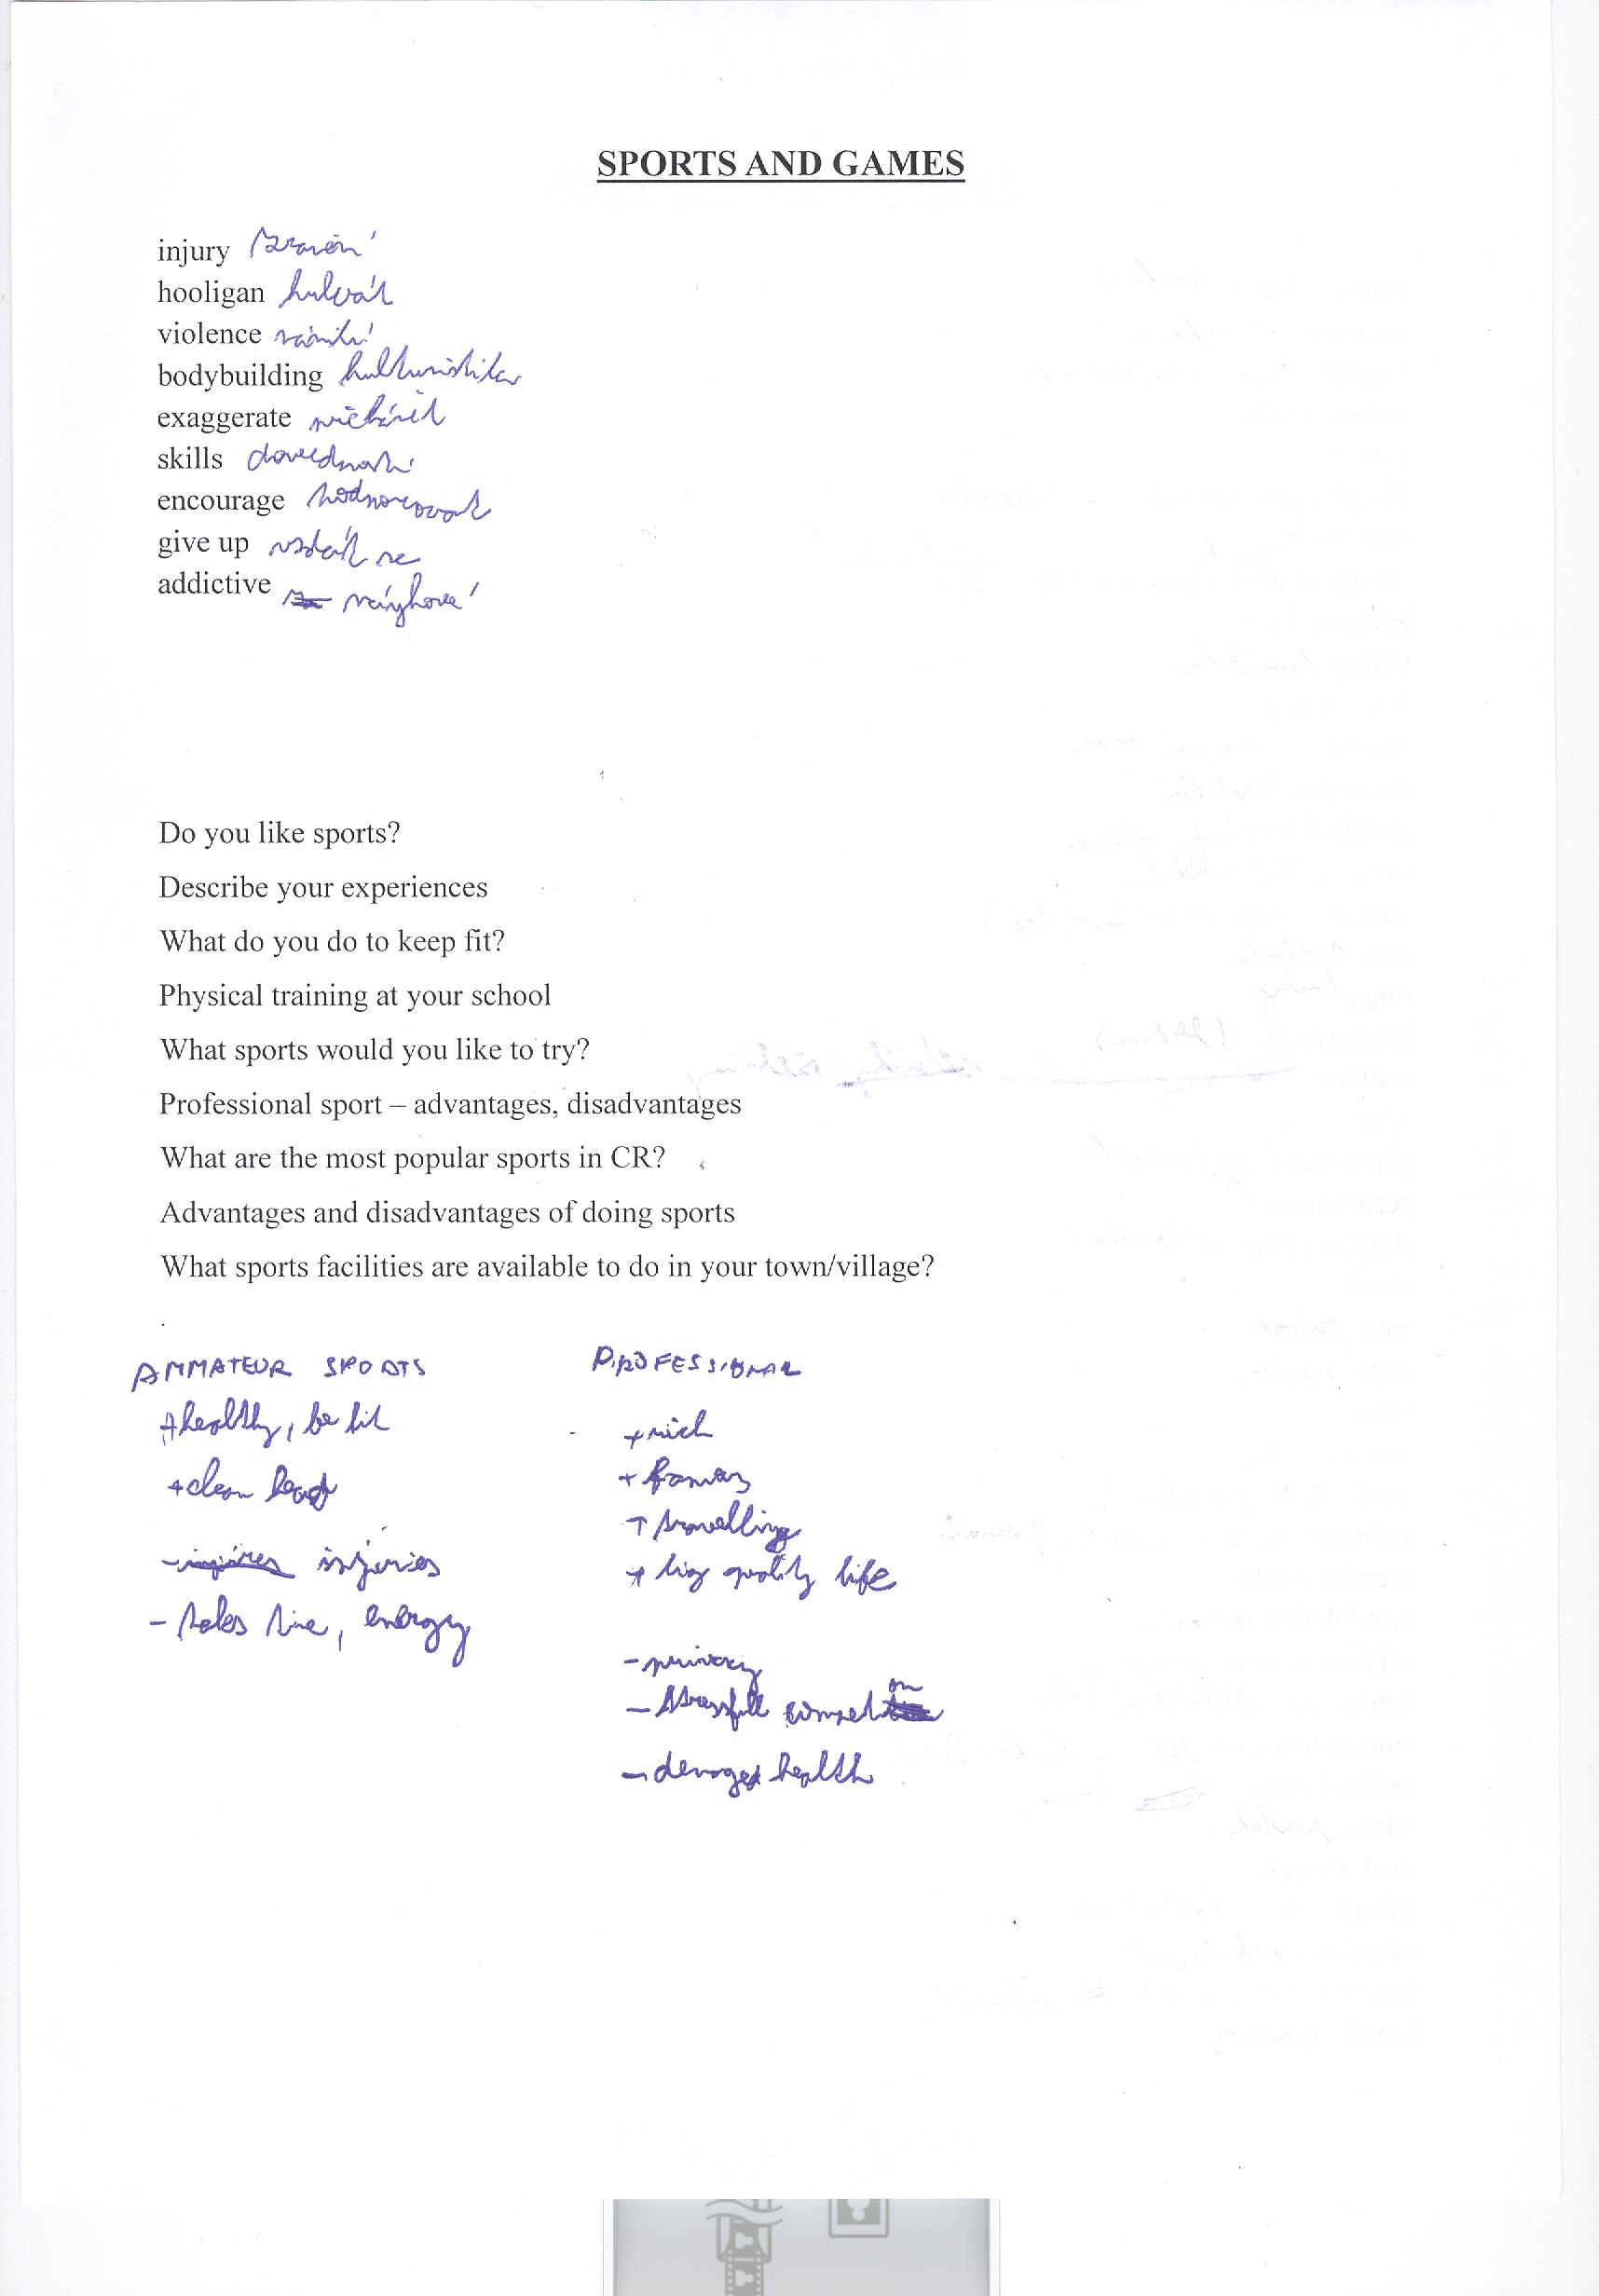 SPORTS AND GAMES
injury zranění
hooligan hulvát
violence násilí
bodybuilding kulturistika
exaggerate
skills dovednosti
encourage
give up vzdát se
addictive návykové
Do you like sports?
Describe your experiences
What do you do to keep fit?
Physical training at your school
What sports would you like to try?
Professional sport – advantages, disadvantages
What are the most popular sports in CR?
Advantages and disadvantages of doing sports
What sports facilities are available to do in your town/village?
AMMATEUR SPORTS
+ healthy, be fit
+ clean head
- injuries
- takes time, energy
PROFESSIONAL
+ rich
+ famous
+ travelling
+ quality life
- privacy
- stressfull
- health